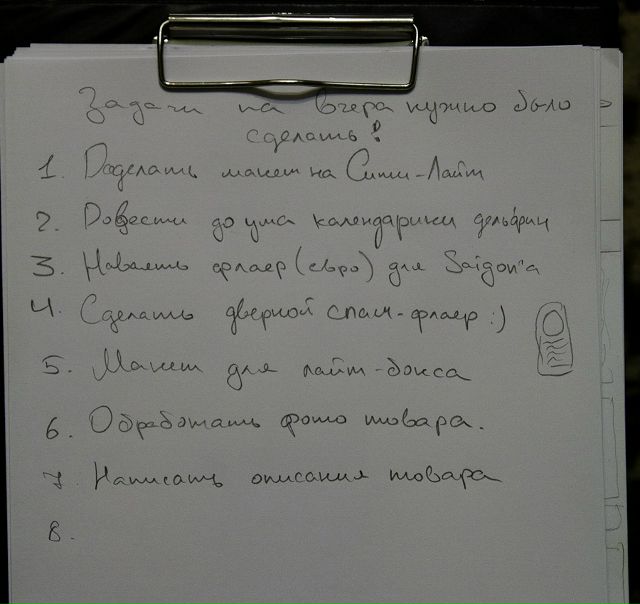 Задачи на вчера нужно было
сделать!
1. Доделать макет на Сити-Лайт
2. Довести до ума календарики дельфин
3. Наваять флаер (евро) для Saigon'а
4. Сделать дверной спам-флаер :)
5. Макет для лайт-бокса
6. Обработать фото товара.
7. Написать описания товара
8.